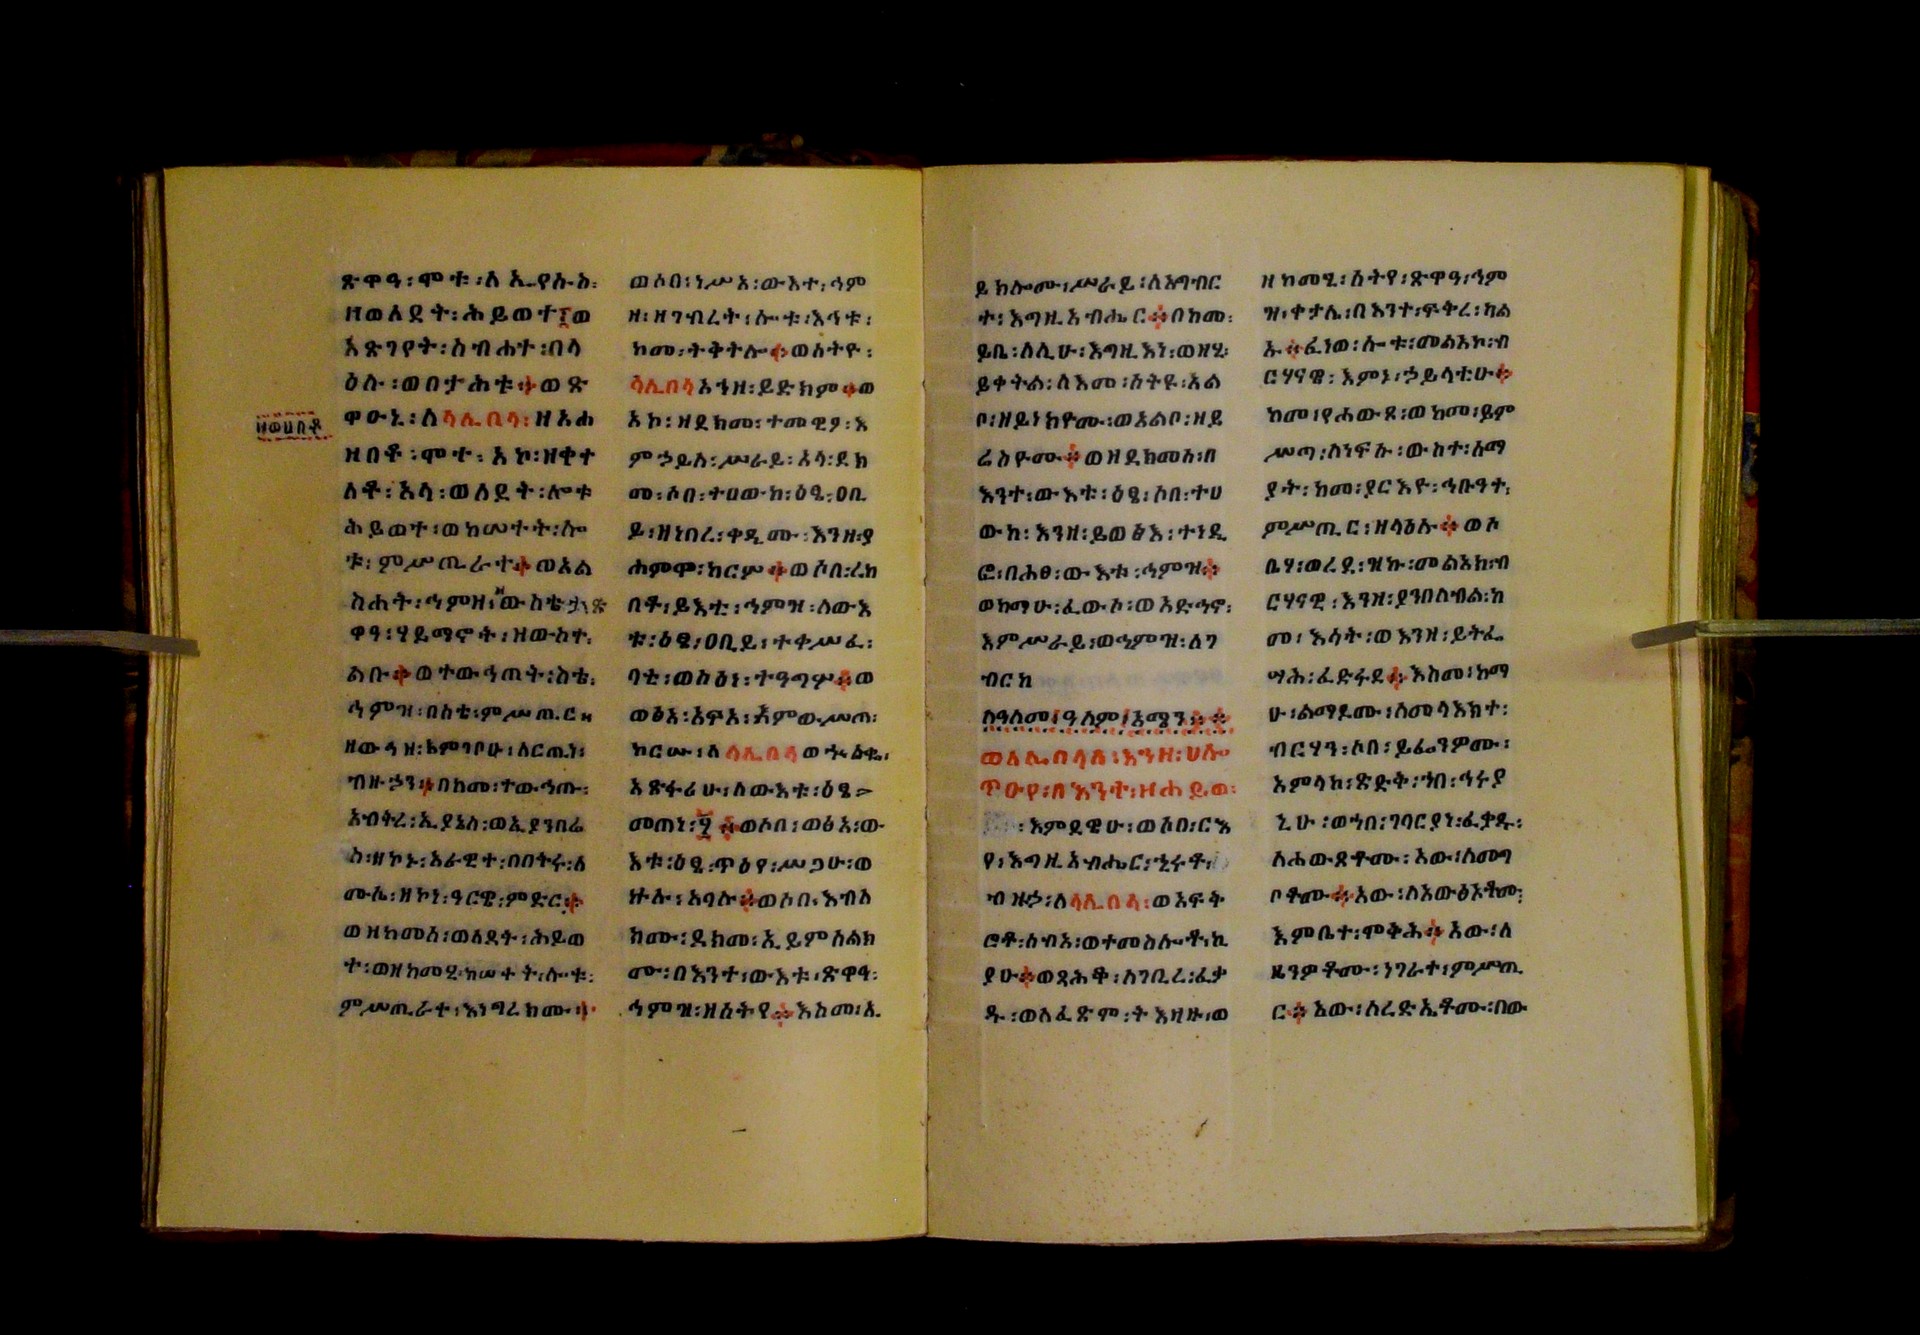 ጽዋዓ፡ሞቱ፡ለኢየሱስ፡
ዘወለደት፡ሕይወተ፤ወ
አጽገየት፡ስብሐተ፡በላ
ዕሉ፡ወበታሕቱ።ወጽ
ዘወሀበቶ
ዋዑኒ፡ለላሊበላ፡ዘአሐ
ዘበቶ፡ሞተ፡አኮ፡ዘቀተ
ለቶ፡አላ፡ወለደት፡ሎቱ
ሕይወተ፡ወከሠተት፡ሎ
ቱ፡ምሥጢራተ።ወአል
ስሐት፡ኅምዘ፡ውስቴታ፡ጽ
ዋዓ፡ሃይማኖት፡ዘውስተ፡
ልቡ።ወተውኅጠት፡ስቴ፡
ኅምዝ፡በስቴ፡ምሥጢር።
ብዙኃን።በከመ፡ተውኅጡ፡
አብትረ፡ኢያኔስ፡ወኢያንበሬ
ስ፡ዘኮኑ፡አራዊተ፡በበትሩ፡ለ
ሙሴ፡ዘኮነ፡ዓርዌ፡ምድር።
ወዘከመሰ፡ወለደት፡ሕይወ
ተ፡ወዘከመሂ፡ከሠተት፡ሎቱ፡
ምሥጢራተ፡እነግረክሙ።
ወሶበ፡ነሥአ፡ውእተ፡ኅም
ዘ፡ዘገብረት፡ሎቱ፡እኅቱ፡
ከመ፡ትቅትሎ።ወሰትዮ፡
ላሊበላ፡እንዘ፡ይድክም።ወ
አኮ፡ዘደክመ፡ተመዊፆ፡እ
ምኃይለ፡ሥራይ፡አላ፡ደክ
መ፡ሶበ፡ተሀውከ፡ዕፄ፡ዐቢ
ይ፡ዘነበረ፡ቀዲሙ፡እንዘ፡ያ
ሐምሞ፡ከርሦ።ወሶበ፡ረከ
በቶ፡ይእቲ፡ኅምዝ፡ለውእ
ቱ፡ዕፄ፡ዐቢይ፡ተቀሥፈ፡
ባቲ፡ወስዕነ፡ተዓግሦ።ወ
ወፅአ፡አፍአ፡እምውሥጠ፡
ከርሡ፡ለላሊበላ፡
አጽፋሪሁ፡ለውእቱ፡ዕፄ፡
መጠነ፡፱።ወሶበ፡ወፅአ፡ው
እቱ፡ዕፄ፡ጥዕየ፡ሥጋሁ፡ወ
ኵሉ፡አባሉ።ወሶበ፡እብለ
ክሙ፡ደክመ፡ኢይምስልክ
ሙ፡በእንተ፡ውእቱ፡ጽዋዓ፡
ኅምዝ፡ዘሰትየ።እስመ፡ኢ
ይክሎሙ፡ሥራይ፡ለአግብር
ተ፡እግዚአብሔር።በከመ፡
ይቤ፡ለሊሁ፡እግዚእነ፡ወዘሂ፡
ይቀትል፡ሕምዘ፡ሰትዩ፡አል
ቦ፡ዘይነክዮሙ፡ወአልቦ፡ዘይ
ሬስዮሙ።ወዘደክመሰ፡በ
እንተ፡ውእቱ፡ዕፄ፡ሶበ፡ተሀ
ውከ፡እንዘ፡ይወፅእ፡ተነዲ
ፎ፡በሕፀ፡ውእቱ፡ኅምዝ።
ወከማሁ፡ፈውሶ፡ወአድኀኖ፡
እምሥራይ፡ወኅምዝ፡ለገ
ብርከ
ለዓለመ፡ዓለም፡አሜን።
ወላሊበላሰ፡እንዘ፡ሀሎ
ጥዑየ፡በእንተ፡ዘሐይወ፡
እምደዌሁ፡ወሶበ፡ርእ
የ፡እግዚአብሔር፡ኂሩቶ፡
ብዙኃ፡ለላሊበላ፡ወአፍት
ሮቶ፡ሰብአ፡ወተመስሎቶ፡ኪ
ያሁ።ወጻሕቆ፡ለገቢረ፡ፈቃ
ዱ፡ወለፈጽሞ፡ትእዛዙ፡ወ
ዘከመሂ፡ሰትየ፡ጽዋዓ፡ኅም
ዝ፡ቀታሊ፡በእንተ፡ፍቅረ፡ካል
ኡ።ፈነወ፡ሎቱ፡መልአኮ፡ብ
ርሃናዌ፡እምነ፡ኃይላቲሁ።
ከመ፡የሐውጾ፡ወከመ፡ይም
ሥጣ፡ለነፍሱ፡ውስተ፡ሰማ
ያት፡ከመ፡ያርእዮ፡ኅቡዓተ፡
ምሥጢር፡ዘላዕሉ።ወሶ
ቤሃ፡ወረደ፡ዝኩ፡መልአከ፡ብ
ርሃናዊ፡እንዘ፡ያንበለብል፡ከ
መ፡እሳት፡ወእንዘ፡ይትፌ
ሣሕ፡ፈድፋደ።እስመ፡ከማ
ሁ፡ልማዶሙ፡ለመላእክተ፡
ብርሃን፡ሶበ፡ይፌንዎሙ፡
አምላክ፡ጽድቅ፡ኀበ፡ኅሩያ
ኒሁ፡ወኀበ፡ገባርያነ፡ፈቃዱ፡
ለሐውጾቶሙ፡አው፡ለመግ
ቦቶሙ።አው፡ለአውፅኦቶሙ፡
እምቤተ፡ሞቅሕ።አው፡ለ
ዜንዎቶሙ፡ነገራተ፡ምሥጢ
ር።አው፡ለረድኤቶሙ፡በው